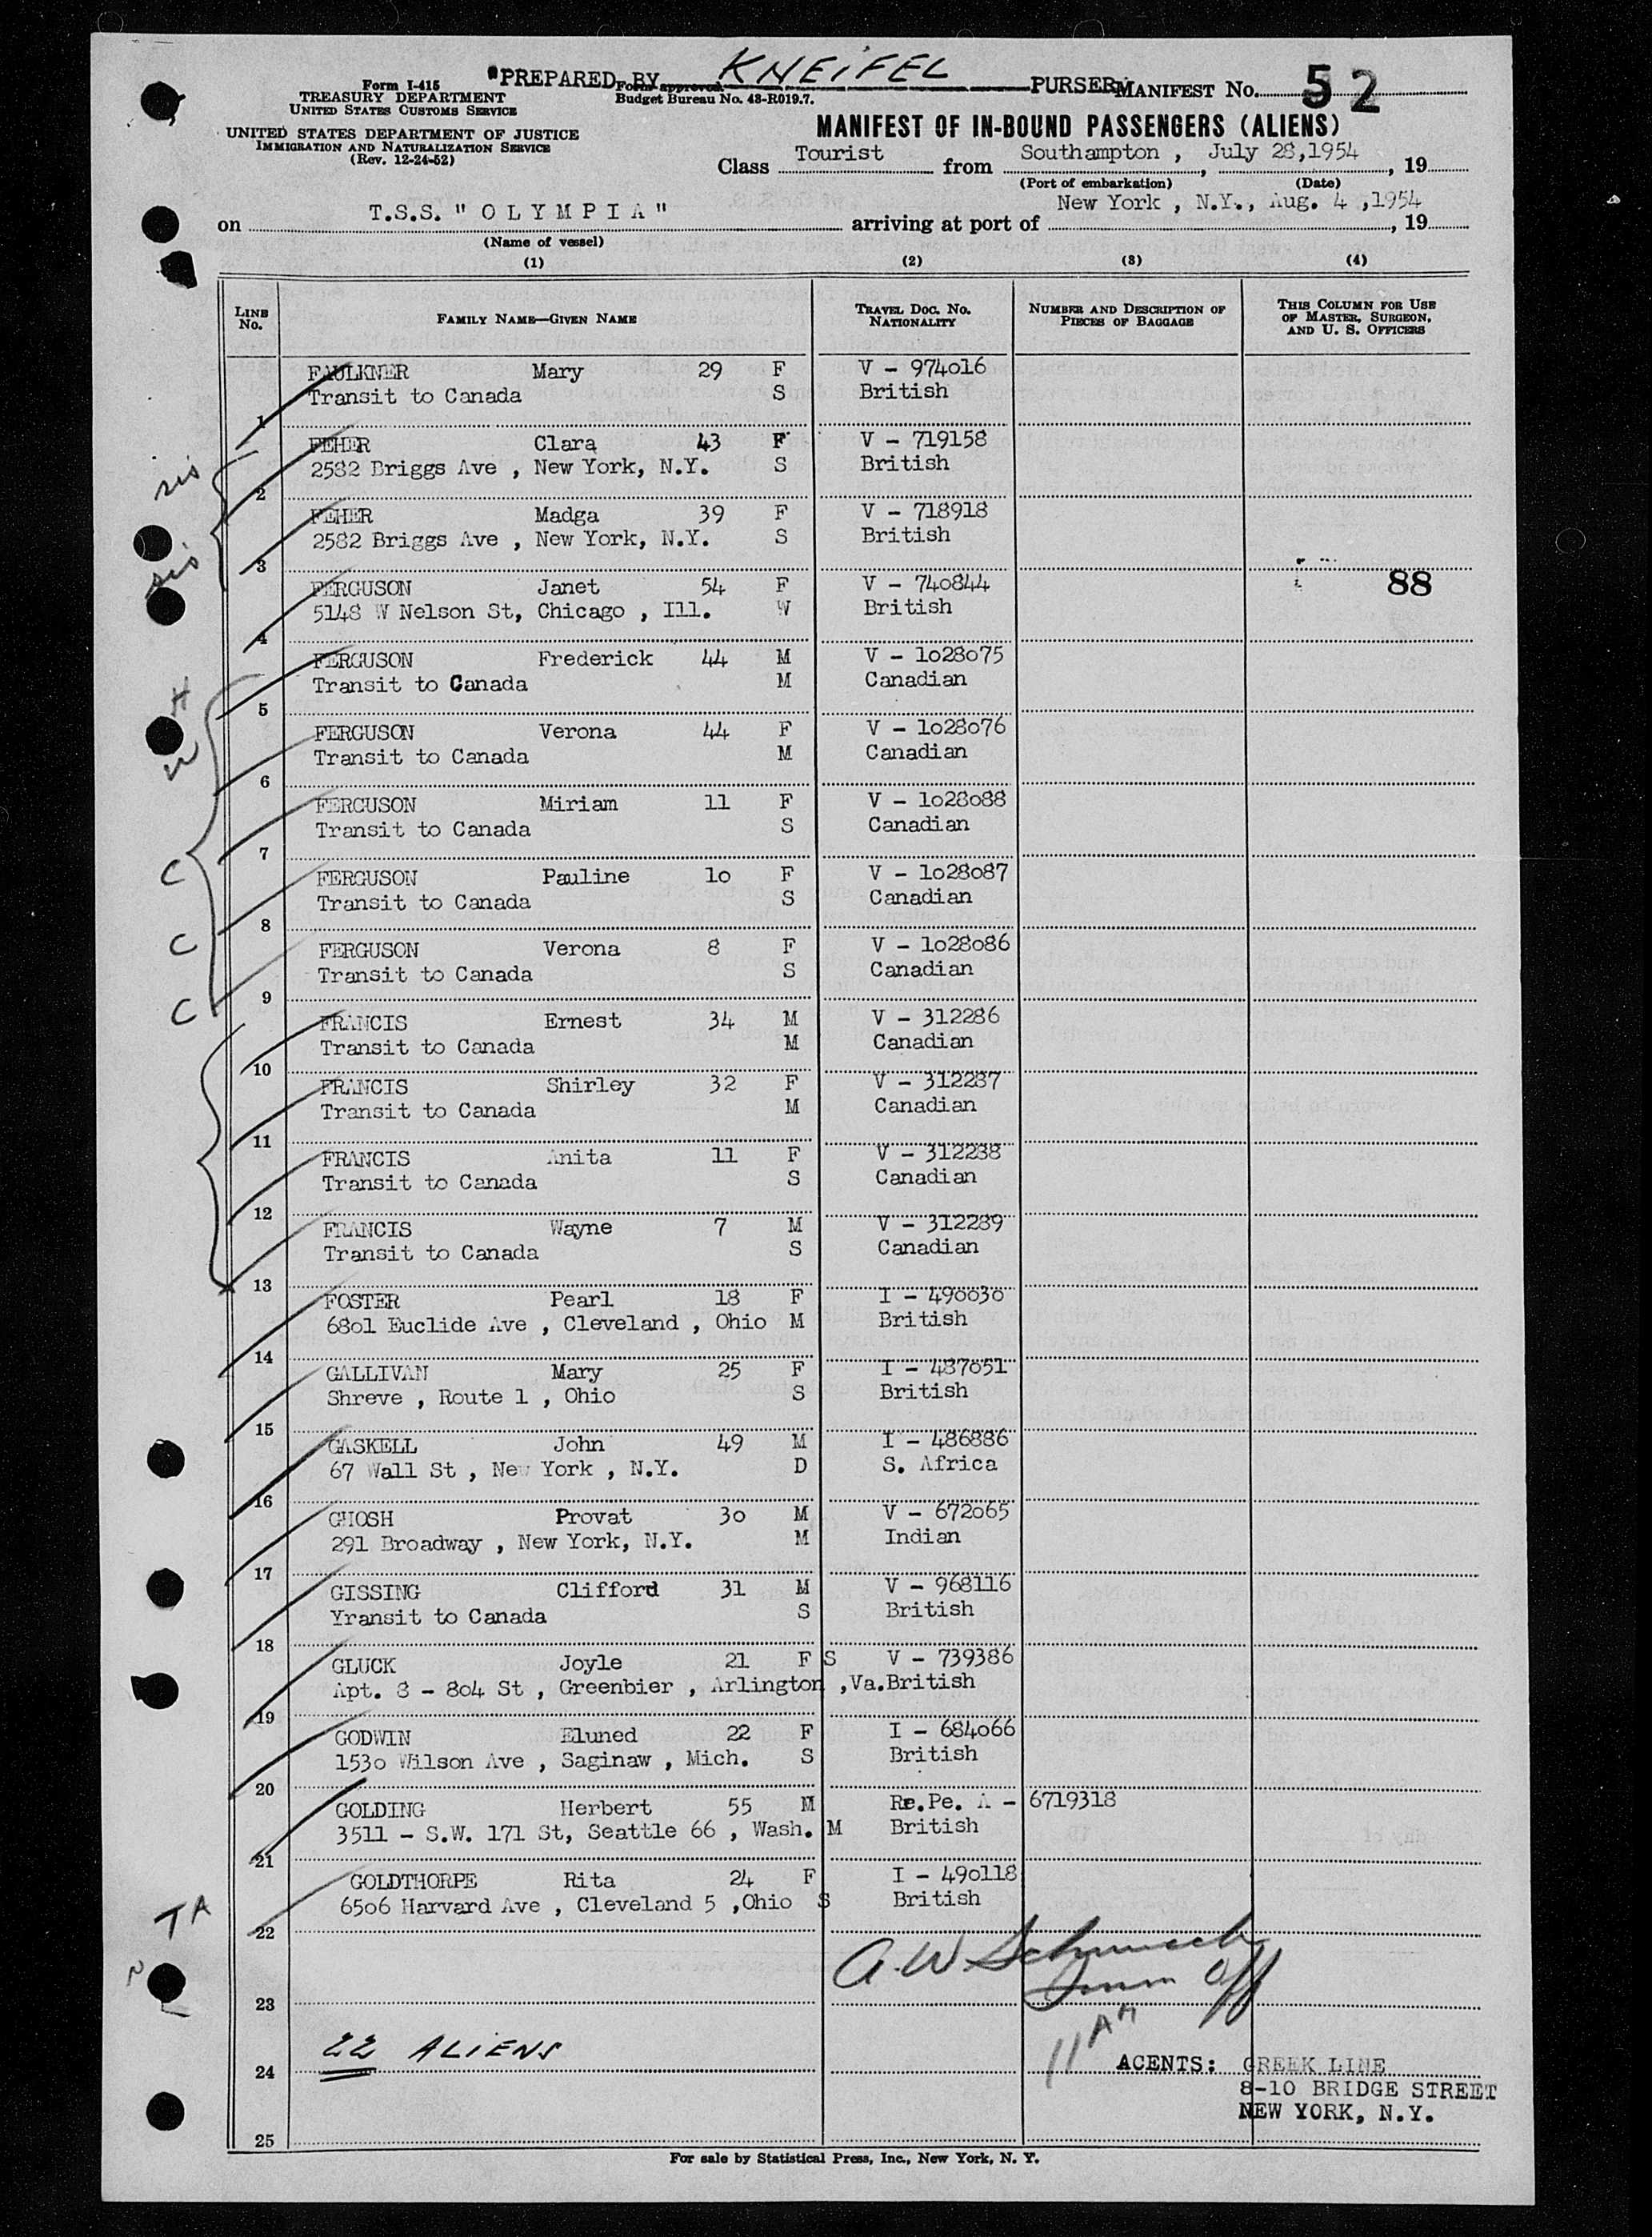 Form I-415
TREASURY DEPARTMENT
UNITED STATES CUSTOMS SERVICE
UNITED STATES DEPARTMENT OF JUSTICE
IMMIGRATION AND NATURALIZATION SERVICE
(Rev. 12-24-52)
PREPARED BY KNEIFEL PURSER
Form approved.
Budget Bureau No. 43-R019.7.
MANIFEST No. 52
MANIFEST OF IN-BOUND PASSENGERS (ALIENS)
Class Tourist from Southampton , July 28,1954 , 19
(Port of embarkation) (Date)
on T.S.S. " O L Y M P I A " arriving at port of New York , N.Y., Aug. 4 ,1954 , 19
(Name of vessel)
(1) (2) (3) (4)
LINE No. FAMILY NAME—GIVEN NAME TRAVEL DOC. NO. NATIONALITY NUMBER AND DESCRIPTION OF PIECES OF BAGGAGE THIS COLUMN FOR USE OF MASTER, SURGEON, AND U. S. OFFICERS
FAULKNER Mary 29 F V - 974016
Transit to Canada S British
1
sis FEHER Clara 43 F V - 719158
2582 Briggs Ave , New York, N.Y. S British
2
FEHER Madga 39 F V - 718918
2582 Briggs Ave , New York, N.Y. S British
3
sis FERGUSON Janet 54 F V - 740844 88
5148 W Nelson St, Chicago , Ill. W British
4
FERGUSON Frederick 44 M V - 1o28o75
H Transit to Canada M Canadian
5
FERGUSON Verona 44 F V - 1o28o76
W Transit to Canada M Canadian
6
FERGUSON Miriam 11 F V - 1o28o88
Transit to Canada S Canadian
7
C FERGUSON Pauline 1o F V - 1o28o87
Transit to Canada S Canadian
8
C FERGUSON Verona 8 F V - 1o28o86
Transit to Canada S Canadian
9
C FRANCIS Ernest 34 M V - 312286
Transit to Canada M Canadian
10
FRANCIS Shirley 32 F V - 312287
Transit to Canada M Canadian
11
FRANCIS Anita 11 F V - 312288
Transit to Canada S Canadian
12
FRANCIS Wayne 7 M V - 312289
Transit to Canada S Canadian
13
FOSTER Pearl 18 F I - 490030
68o1 Euclide Ave , Cleveland , Ohio M British
14
GALLIVAN Mary 25 F I - 487o51
Shreve , Route 1 , Ohio S British
15
GASKELL John 49 M I - 486886
67 Wall St , New York , N.Y. D S. Africa
16
GHOSH Provat 3o M V - 672o65
291 Broadway , New York, N.Y. M Indian
17
GISSING Clifford 31 M V - 968116
Yransit to Canada S British
18
GLUCK Joyle 21 F S V - 739386
Apt. 8 - 8o4 St , Greenbier , Arlington ,Va. British
19
GODWIN Eluned 22 F I - 684o66
153o Wilson Ave , Saginaw , Mich. S British
20
GOLDING Herbert 55 M Re.Pe. A - 6719318
3511 - S.W. 171 St, Seattle 66 , Wash. M British
21
GOLDTHORPE Rita 24 F I - 49o118
TA 65o6 Harvard Ave , Cleveland 5 ,Ohio S British
22
Imm Off
23
11 AM
22 ALIENS
24
AGENTS: GREEK LINE
8-10 BRIDGE STREET
NEW YORK, N.Y.
25
For sale by Statistical Press, Inc., New York, N. Y.